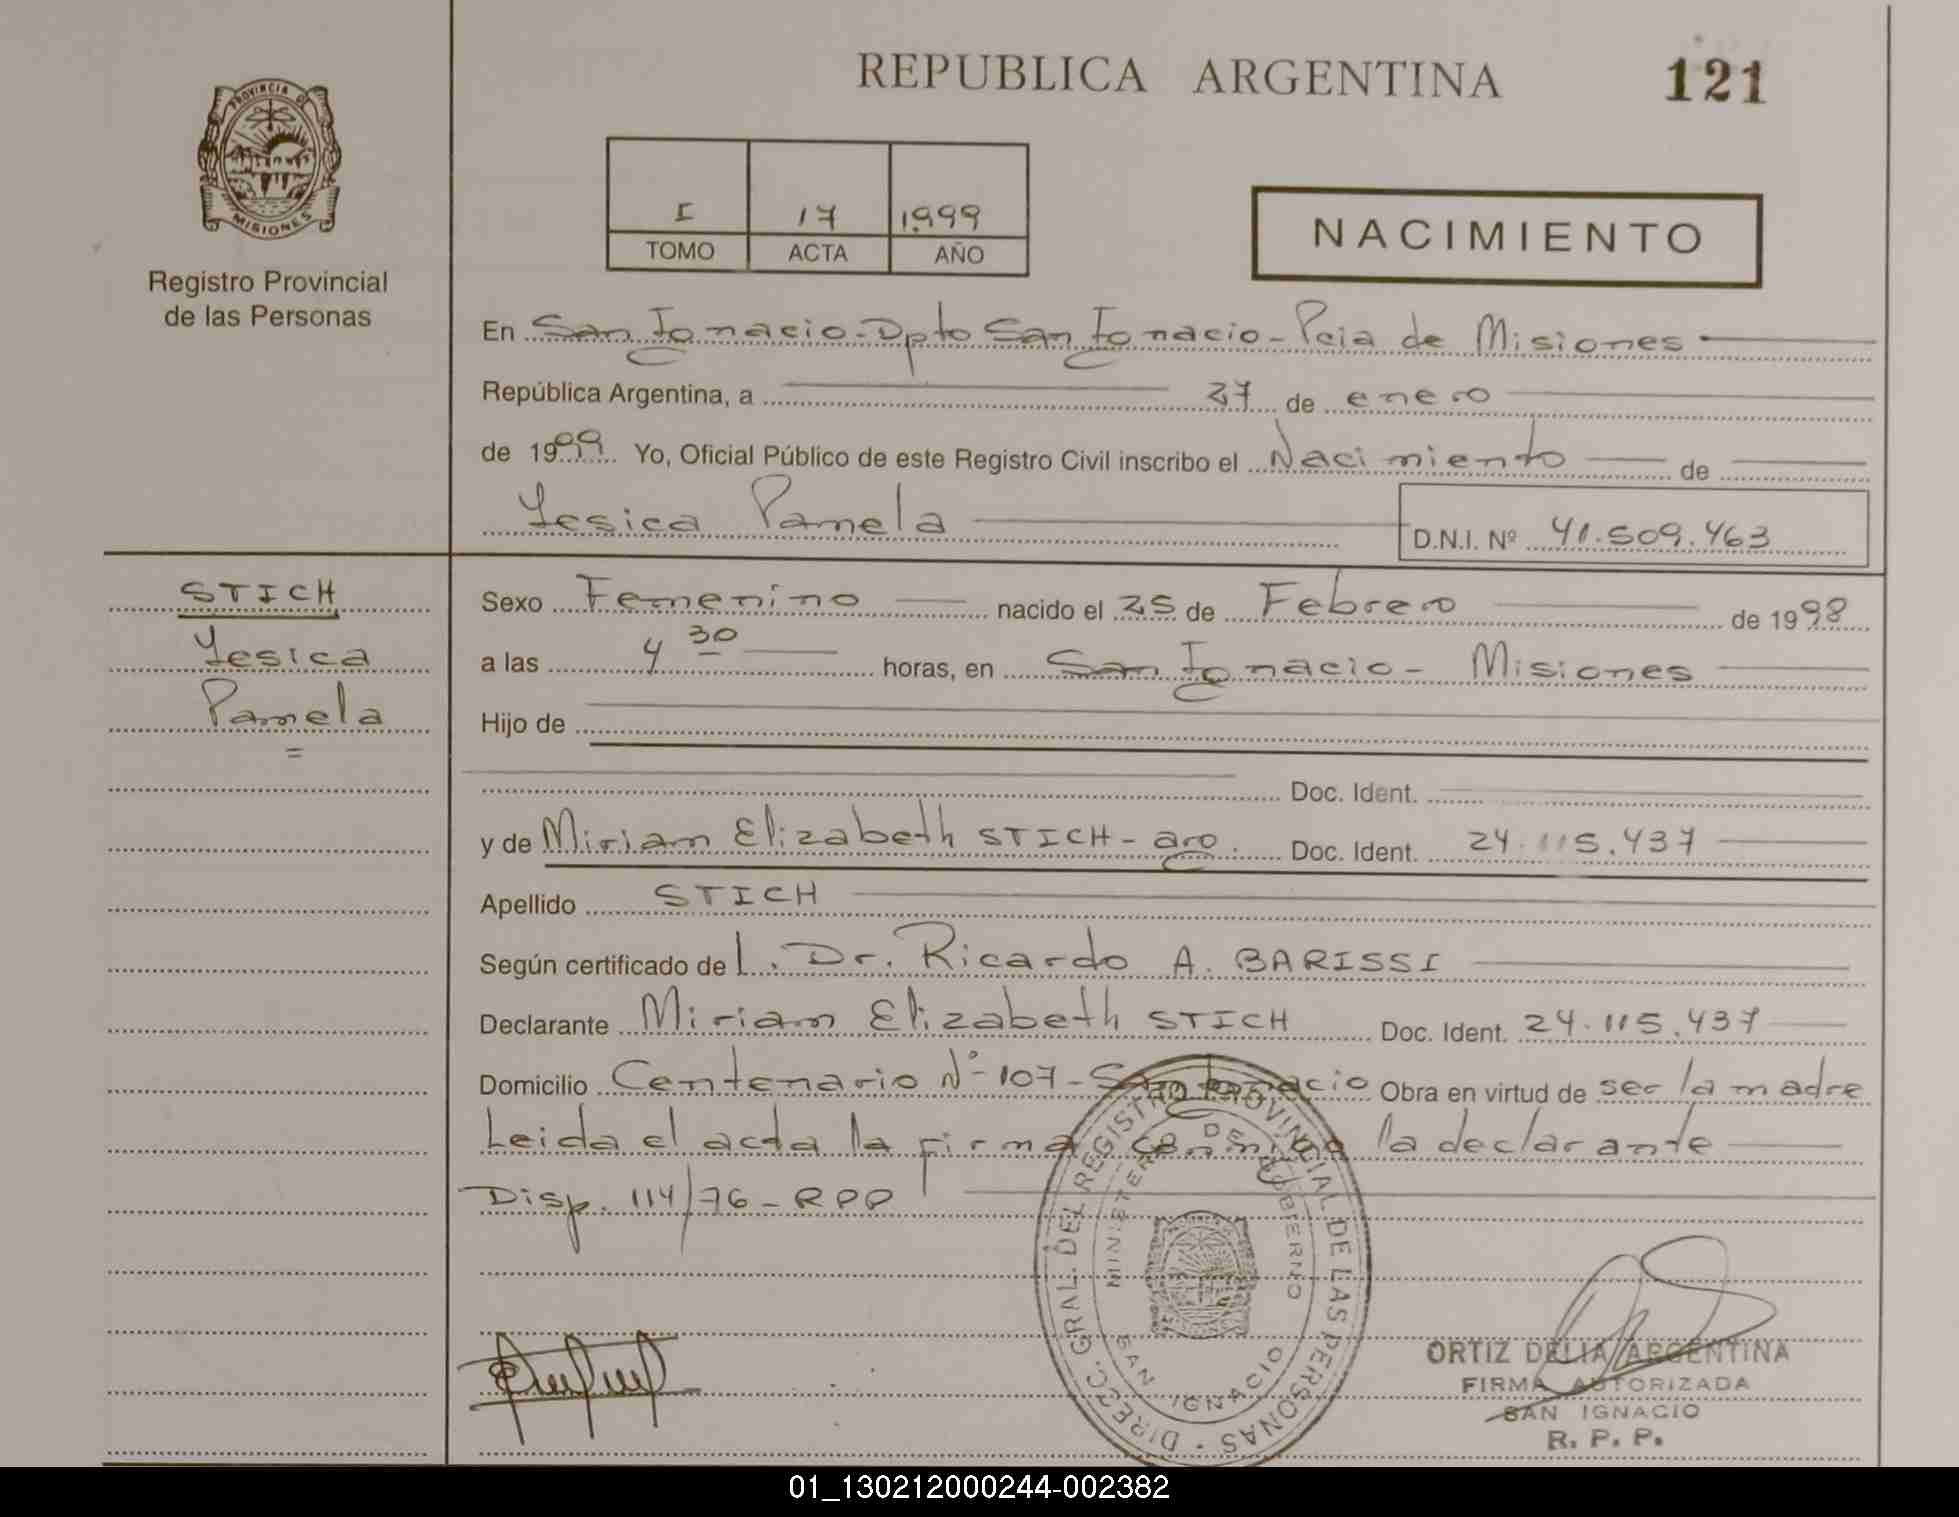 REPUBLICA ARGENTINA
121
PROVINCIA DE
MISIONES
Registro Provincial
de las Personas
I 17 1999
TOMO ACTA AÑO
NACIMIENTO
En San Ignacio - Dpto San Ignacio - Pcia de Misiones
República Argentina, a 27 de enero
de 1999 Yo, Oficial Público de este Registro Civil inscribo el Nacimiento de
Yesica Pamela
D.N.I. Nº 41.509.463
STICH
Yesica
Pamela
Sexo Femenino nacido el 25 de Febrero de 1998
a las 4 30 horas, en San Ignacio - Misiones
Hijo de
Doc. Ident.
y de Miriam Elizabeth STICH - arg. Doc. Ident. 24.115.437
Apellido STICH
Según certificado del. Dr. Ricardo A. BARISSI
Declarante Miriam Elizabeth STICH Doc. Ident. 24.115.437
Domicilio Centenario Nº 107 - San Ignacio Obra en virtud de ser la madre
Leida el acta la firma conmigo la declarante
Disp. 114/76 - RPP
DIRECC. GRAL. DEL REGISTRO PROVINCIAL DE LAS PERSONAS
MINISTERIO DE GOBIERNO
SAN IGNACIO
ORTIZ DELIA ARGENTINA
FIRMA AUTORIZADA
SAN IGNACIO
R. P. P.
01_130212000244-002382